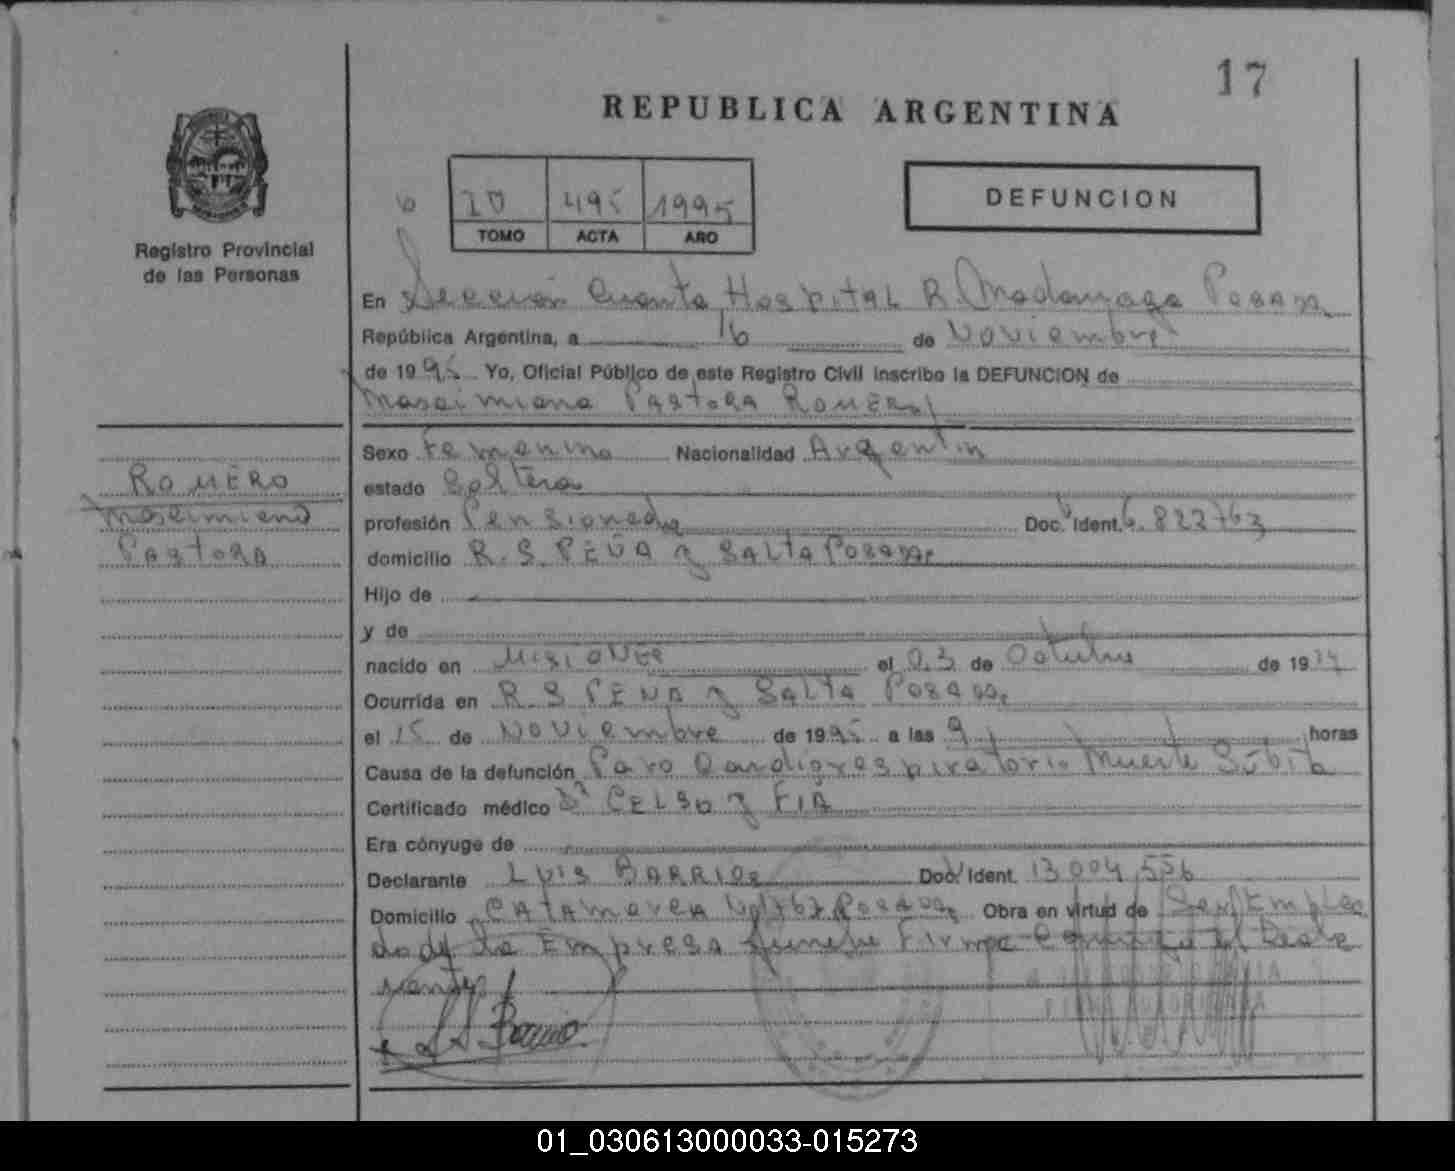 17
REPUBLICA ARGENTINA
DEFUNCION
Registro Provincial
de las Personas
495 1995
TOMO ACTA AÑO
En Sección Cuarta Hospital R. Madariaga Posadas
República Argentina, a 16 de Noviembre
de 1995 Yo, Oficial Público de este Registro Civil inscribo la DEFUNCION de
Pastora Romero
Sexo Femenino Nacionalidad Argentin
ROMERO
estado Soltera
profesión Pensionada Doc. Ident. 6.822763
PASTORA
domicilio R.S. PEÑA y SALTA POSADAS
Hijo de
y de
nacido en MISIONES el 03 de Octubre de 19
Ocurrida en R.S PEÑA y SALTA POSADAS
el 15 de Noviembre de 1995 a las 9 horas
Causa de la defunción Paro Cardiorespiratorio Muerte Súbita
Certificado médico Dr CELSO y FIA
Era cónyuge de
Declarante LUIS BARRIOS Doc. Ident. 13004,556
Domicilio CATAMARCA Nº1767 POSADAS Obra en virtud de Ser Emplea
do de la Empresa funebre Firma Conmigo el Decla
rante
01_030613000033-015273